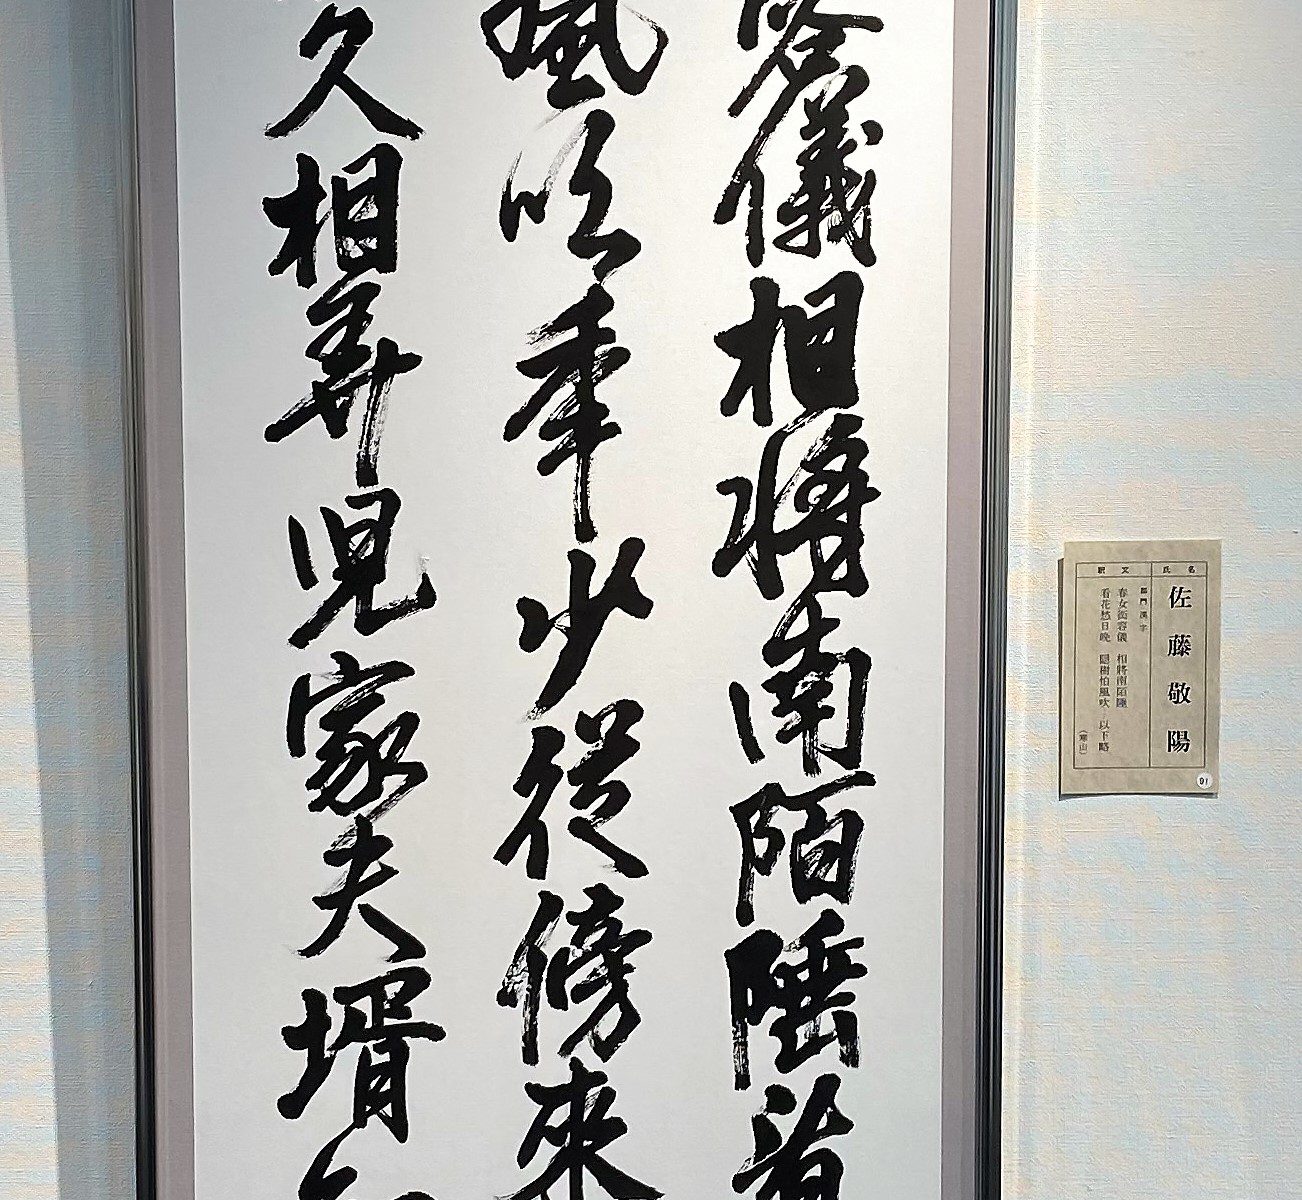 容儀相将南陌陲看
風吹年少従傍来
久相弄児家夫壻
氏名
佐藤敬陽
部門 漢字
釈文
春女衒容儀 相將南陌陲
看花愁日晩 隠樹怕風吹 以下略
(寒山)
91